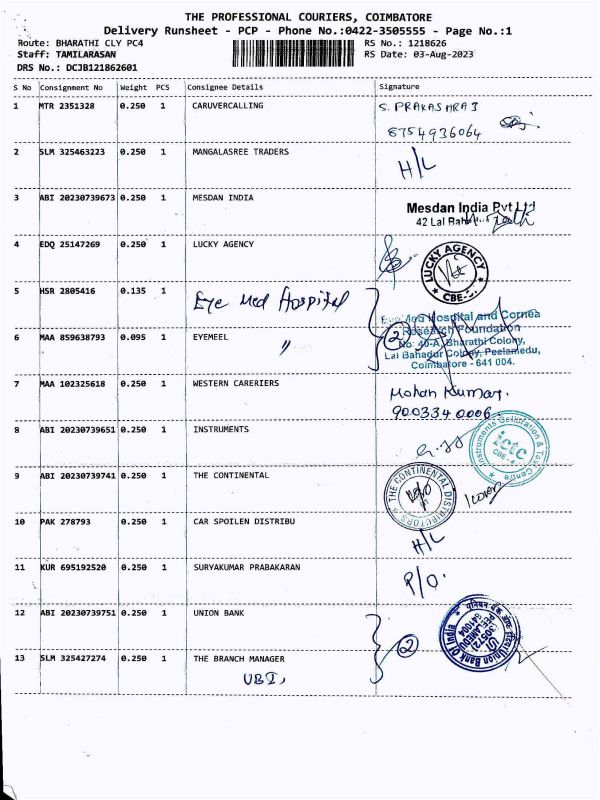 THE PROFESSIONAL COURIERS, COIMBATORE
Delivery Runsheet - PCP - Phone No.:0422-3505555 - Page No.:1
Route: BHARATHI CLY PC4 RS No.: 1218626
Staff: TAMILARASAN RS Date: 03-Aug-2023
DRS No.: DCJB121862601
S No Consignment No Weight PCS Consignee Details Signature
1 MTR 2351328 0.250 1 CARUVERCALLING S. PRAKASHRAJ
8754936064
2 SLM 325463223 0.250 1 MANGALASREE TRADERS H/L
3 ABI 20230739673 0.250 1 MESDAN INDIA Mesdan India Pvt Ltd
42 Lal
4 EDQ 25147269 0.250 1 LUCKY AGENCY LUCKY AGENCY
CBE-
5 HSR 2805416 0.135 1 Eye Med Hospital
Eye Med Hospital and Cornea
Research Foundation
6 MAA 859638793 0.095 1 EYEMEEL 〃 2 No: 40-A, Bharathi Colony,
Lal Bahadur Colony, Peelamedu,
Coimbatore - 641 004.
7 MAA 102325618 0.250 1 WESTERN CARERIERS Mohan Kumar.
9003340006
8 ABI 20230739651 0.250 1 INSTRUMENTS Instruments Calibration & Test Centre
ictc
CBE-4
9 ABI 20230739741 0.250 1 THE CONTINENTAL THE CONTINENTAL DISTRIBUTORS
1 cover
10 PAK 278793 0.250 1 CAR SPOILEN DISTRIBU H/L
11 KUR 695192520 0.250 1 SURYAKUMAR PRABAKARAN P/O.
12 ABI 20230739751 0.250 1 UNION BANK 2 यूनियन बैंक ऑफ इंडिया Union Bank Of India
(30572)
PEELAMEDU
641004
13 SLM 325427274 0.250 1 THE BRANCH MANAGER
UBI,